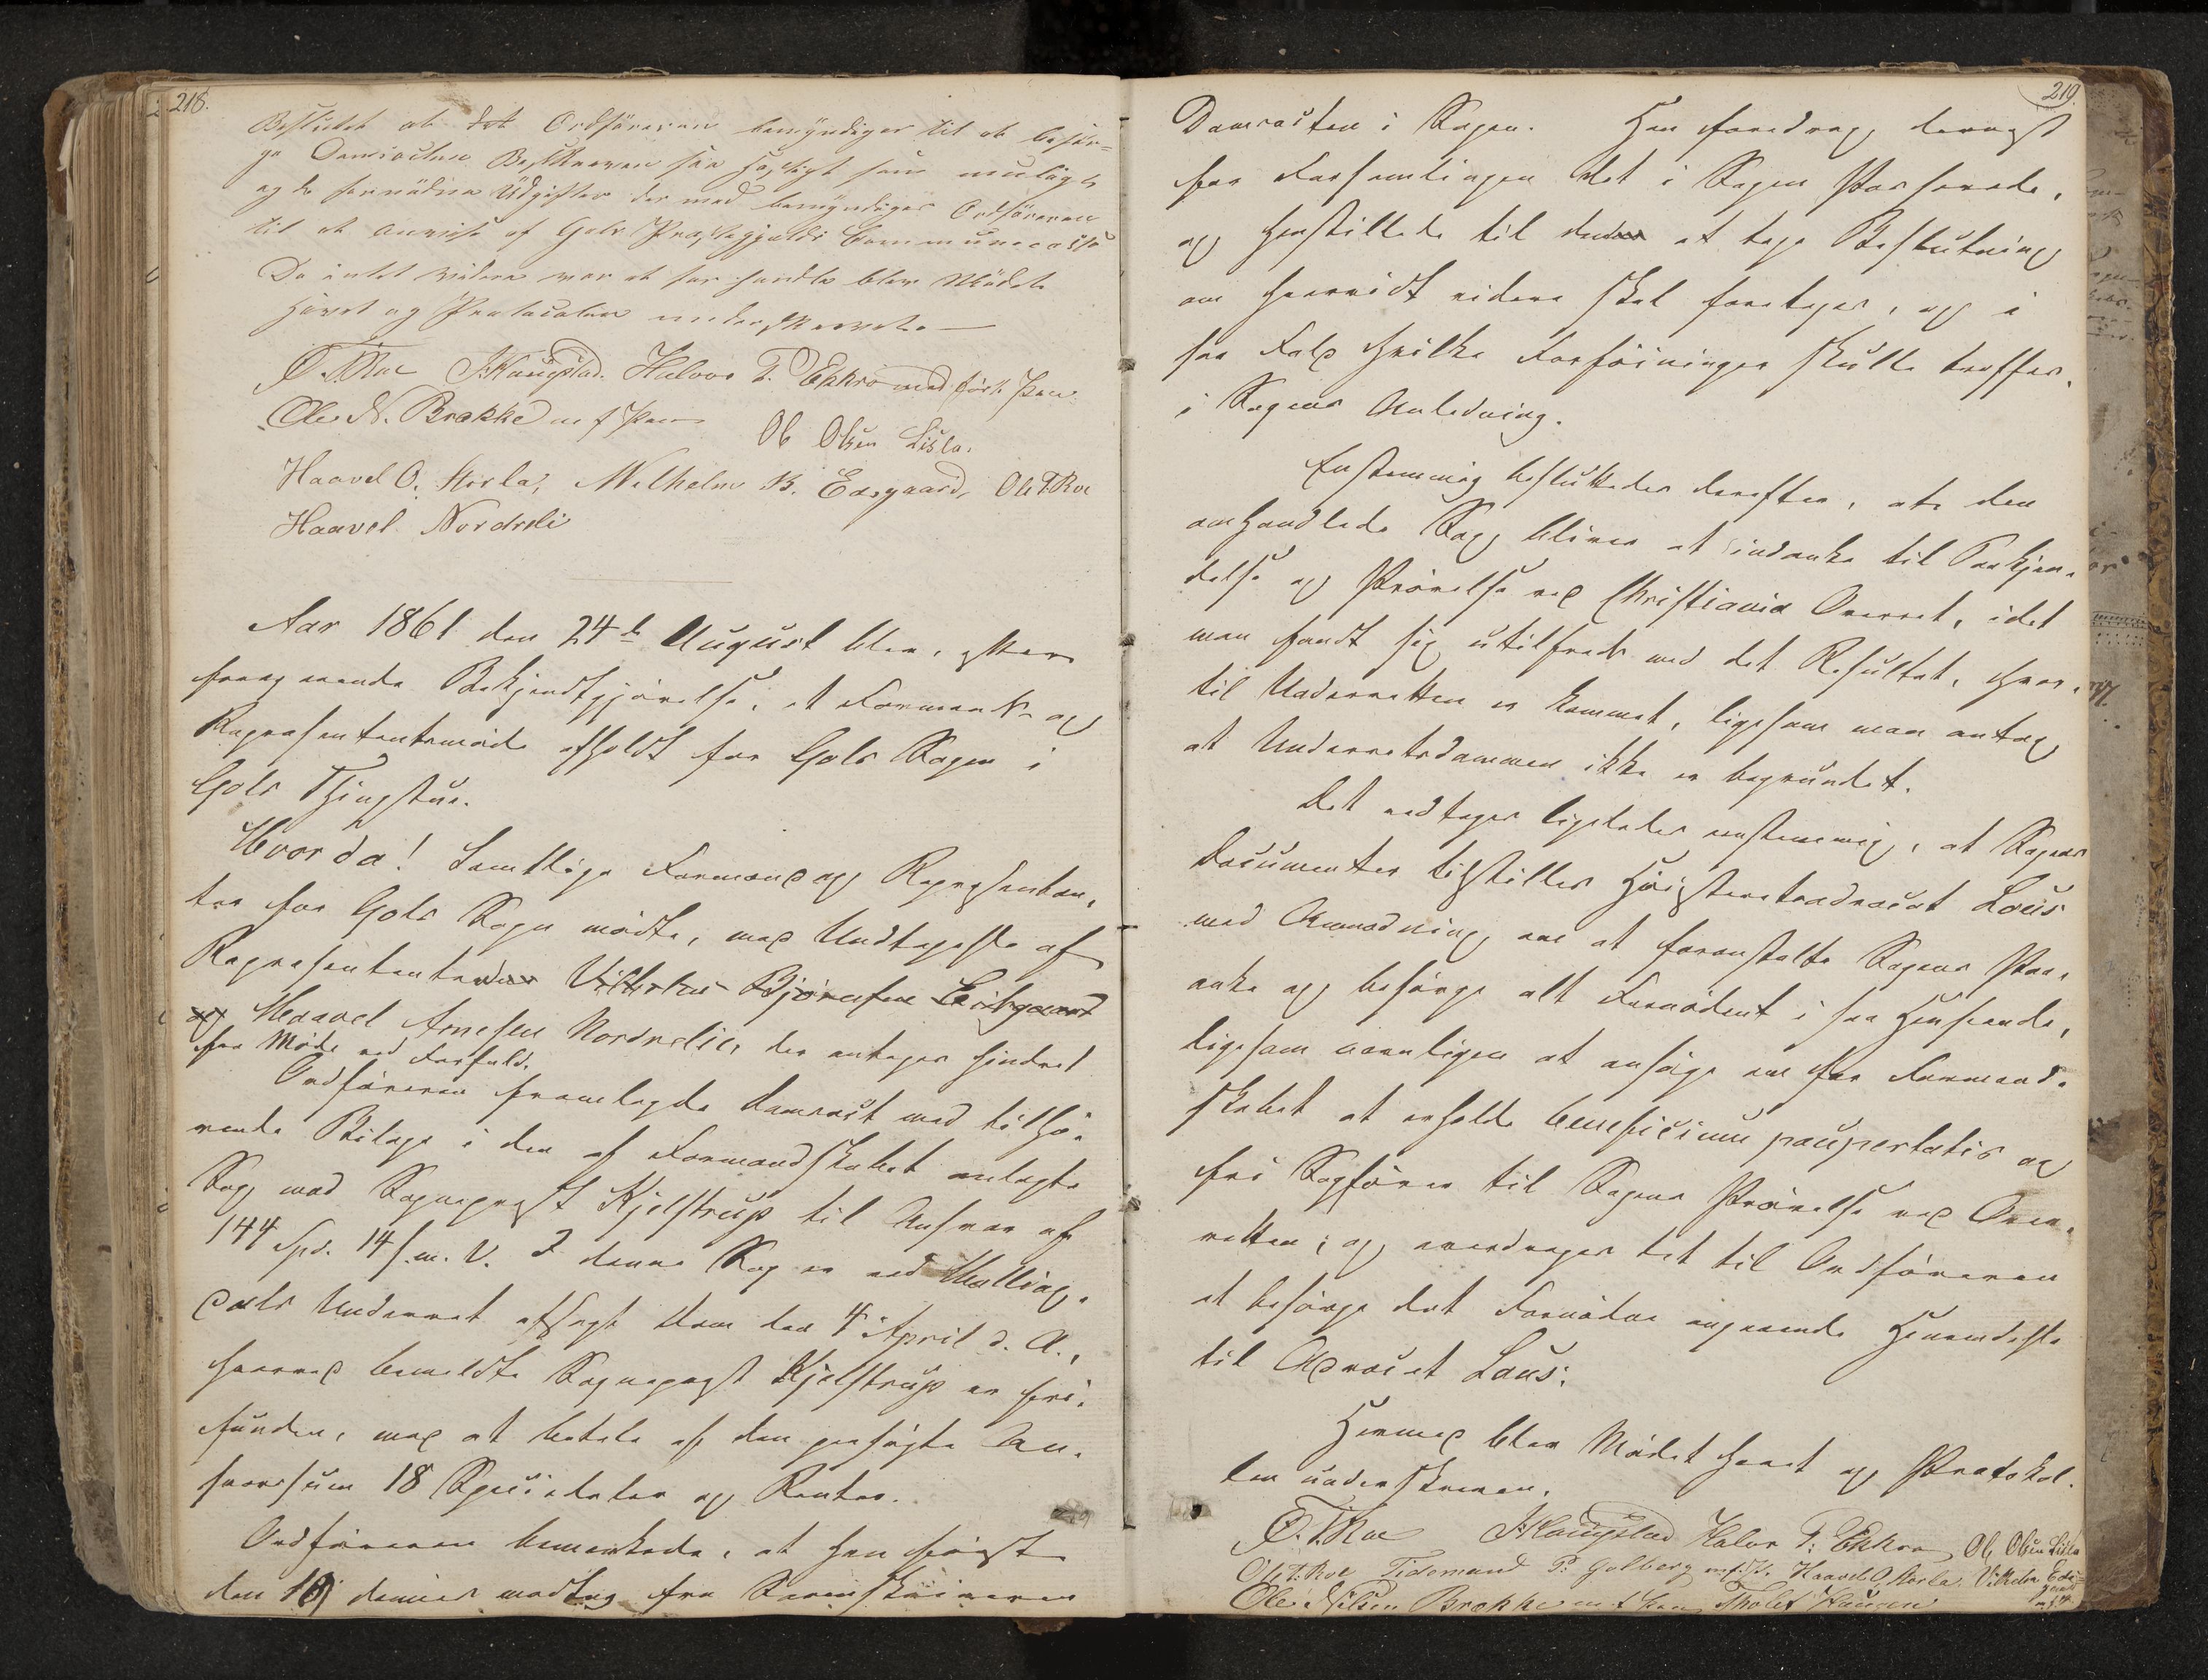 218.
Besluttet at det Ordföreren bemyndiges til at besör-
ge Domsacten Beskreven saa hastigt som muligt
og de fornödne Udgifter der med bemyndiges Ordföreren
til at anvise af Gols Præstegjelds Communecasse
Da intet videre var at forhandle blev Mödet
hævet og Protocolen underskrevet.
O. T. Roe J. Kaugstad. Halvor T. Ekkro med fört Pen
Ole N. Brække m f Pen Ole Olsen Lisla.
Haavel O. Storla, Wilhelm B. Eidsgaard, Ole T. Roe
Haavel Nordreli
Aar 1861 den 24de August blev, efter
foregaaende Bekjendtgjörelse, et Formands- og
Repræsentantmöde afholdt for Gols Sogn i
Gols Thingstue.
Hvorda! Samtlige Formænd og Repræsentan-
ter for Gols Sogn mödte, med Undtagelse af
Repræsentanterne Vilhelm Björnsen Eidsgaard
og Haavel Arnesen Nordrelie, der antages hindret
fra Möde ved Forfald.
Ordföreren fremlagde Domsact med tilhö-
rende Bilage i den af Formandskabet anlagte
Sag mod Sognepræst Kjelstrup til Ansvar af
144 Spd. 14 s. m. V. I denne Sag er ved Halling-
dals Underret afsagt Dom den 4 April d. A.,
hvorved bemeldte Sognepræst Kjelstrup er fri-
funden, mod at betale af den paasögte An-
svarssum 18 Speciedaler og Renter.
Ordföreren bemærkede, at han först
den 10 dennes modtog fra Sorenskriveren
219.
Domsacten i Sagen. Han foredrog dernæst
for Forsamlingen det i Sagen Passerede,
og henstillede til denne at tage Beslutning
om hvorvidt videre skal foretages, og i
saa Fald hvilke Forföininger skulle træffes,
i Sagens Anledning.
Eenstemmig besluttedes derefter, at den
omhandlede Sag bliver at indanke til Paakjen-
delse og Prövelse ved Christiania Overret, idet
man fandt sig utilfreds med det Resultat, hvor-
til Underretten er kommet, ligesom man antog
at Underretsdommen ikke er begrundet.
Det vedtages ligeledes eenstemmig, at Sagens
Documenter tilstilles Höiesteretsadvocat Lous
med Anmodning om at foranstalte Sagens Paa-
anke og besörge alt Fornödent i saa Henseende,
ligesom navnligen at ansöge om for Formand-
skabet at erholde beneficium paupertatis og
fri Sagförer til Sagens Prövelse ved Over-
retten; og overdrages det til Ordföreren
at besörge det Fornödne angaaende Henvendelse
til Advocat Lous.
Hermed blev Mödet hævet og Protokol-
len underskreven.
O. T. Roe J. Kaugstad Halvor T. Ekkro Ole Olsen Lisla
Ole T. Roe Tidemand P. Golberg m. f. P. Haavel O. Storla Vilhelm Eids-
gaard
Ole Nilsen Brække m f Pen Tholef Hansen m. f. P.